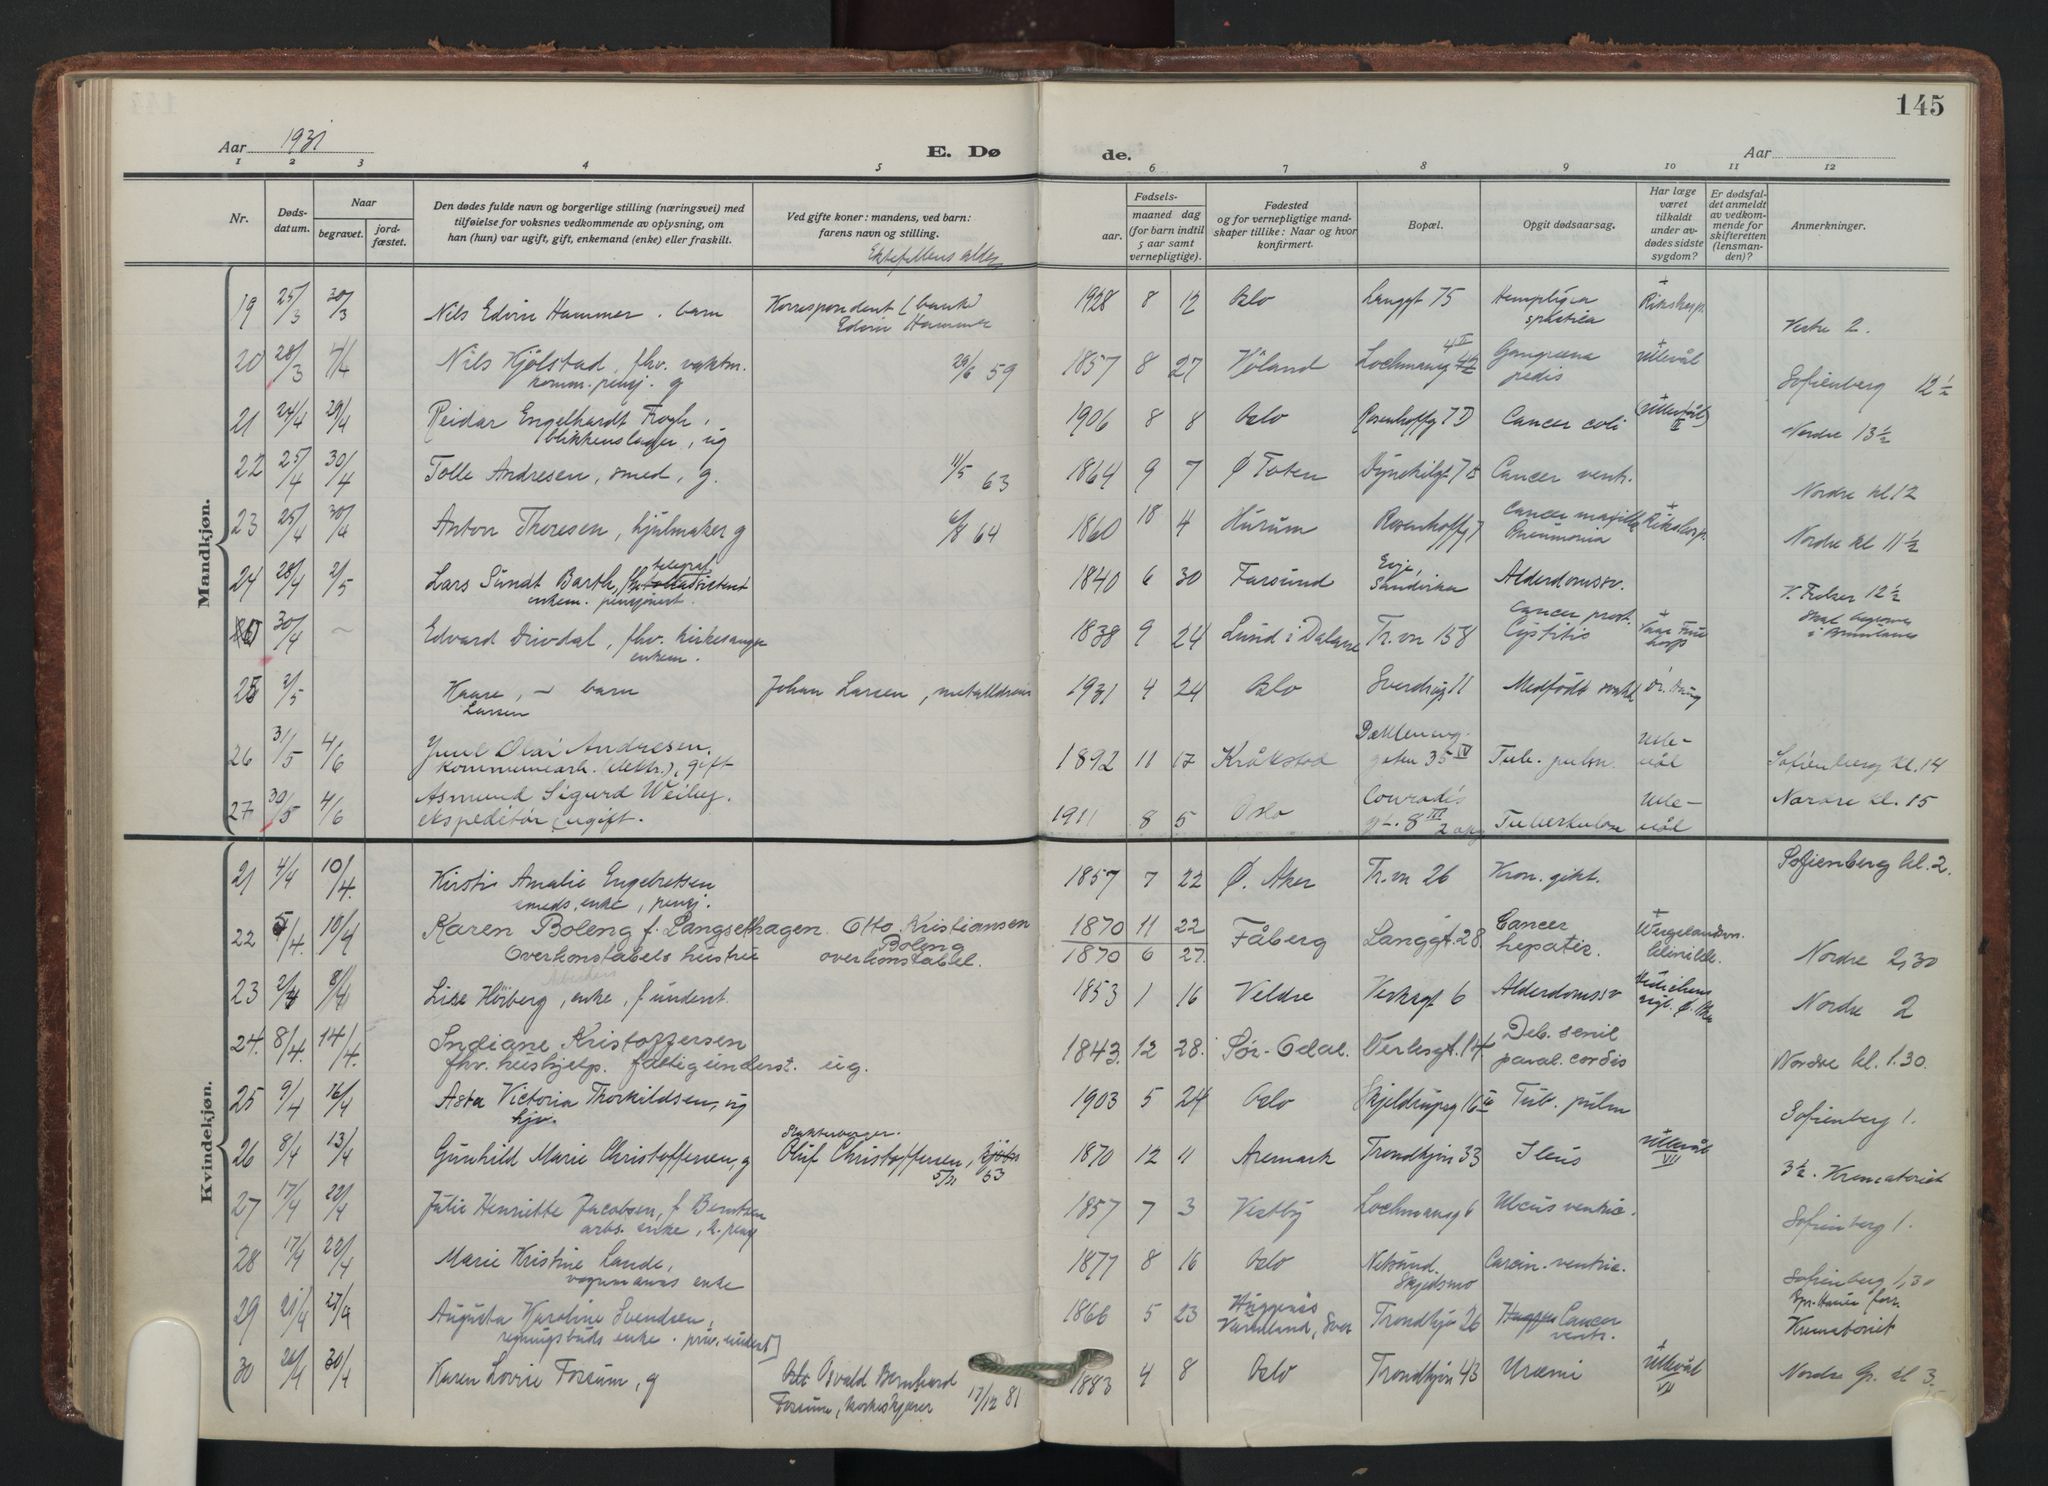 145
Aar 1931
E. Dø
de.
Aar
1 2 3 4 5 6 7 8 9 10 11 12
Nr.
Døds-
datum.
Naar
begravet.
jord-
fæstet.
Den dødes fulde navn og borgerlige stilling (næringsvei) med
tilføielse for voksnes vedkommende av oplysning, om
han (hun) var ugift, gift, enkemand (enke) eller fraskilt.
Ved gifte koner: mandens, ved barn:
farens navn og stilling.
Ektefellens alder
Fødsels-
aar.
maaned dag
(for barn indtil
5 aar samt
vernepligtige).
Fødested
og for vernepligtige mand-
skaper tillike: Naar og hvor
konfirmert.
Bopæl.
Opgit dødsaarsag.
Har læge
været
tilkaldt
under av-
dødes sidste
sygdom?
Er dødsfal-
det anmeldt
av vedkom-
mende for
skifteretten
(lensman-
den)?
Anmerkninger.
Mandkjøn.
19 25/3 30/3 Nils Edvin Hammer. barn Korrespondent (bank) 1928 8 12 Oslo Langgt 75 Hemplegia + Rikshosp.
Edvin Hammer spastica Vestre 2.
20 28/3 4/4 Nils Kjølstad, fhv. vaktm. 29/6 59 1857 8 27 Høland + Ullevål
komm. pensj. g Gangrena pedis Sofienberg 12½
21 24/4 29/4 Reidar Engelhardt Krogh, 1906 8 8 Oslo Rosenhoffg 7D Cancer coli (Ullevål)
blikkenslager, ug Nordre 13½
22 25/4 30/4 Tolle Andresen, smed, g. 11/5 63 1864 9 7 Ø Toten Cancer ventr.
Nordre kl 12
23 25/4 30/4 Anton Theresen, hjulmaker g 6/8 64 1860 10 4 Hurum Rosenhoffg 7 Cancer maxille + Rikshosp.
Pneumonia Nordre kl 11½
24 28/4 2/5 Lars Sundt Barth, telegraf 1840 6 30 Farsund Sandvika Alderdomssv.
enkem. pensjonert. 12½
30/4 – Edvard Drivdal, fhv. kirkesanger 1838 9 24 Lund i Dalane Tr.vn 158 Cancer prost.
enkem. Cystitis
25 2/5 Kaare, – barn Johan Larsen, metalldreier 1931 4 24 Oslo Sverdrupg 11 Medfødt svakh. Dr. Haug
Larsen
26 31/5 4/6 Juul Olai Andresen, 1892 11 17 Kråkstad Dælleneng-
kommunearb. (elektr.), gift gaten 35 IV Tub. pulm. Ulle-
vål Sofienberg kl. 14
27 30/5 4/6 Asmund Sigurd Weiby. 1911 8 5 Oslo Conradis
ekspeditør, ugift. gt. 8 III 2 opg Tuberkulose Ulle-
vål Nordre kl. 15
Kvindekjøn.
21 4/4 10/4. Kirsti Amalie Engebretsen 1857 7 22 Ø. Aker Tr.vn 26 Kron. gikt. Sofienberg kl. 2.
smeds enke, pensj.
22 5/4. 10/4 Karen Boleng f. Langsethagen. Otto Kristiansen 1870 11 22 Fåberg Langgt. 28. Cancer
Overkonstabels hustru Boleng 1870 6 27. hepatis.
overkonstabel. Nordre 2,30
23 2/4 8/4 Lise Høiberg, enke, f. underst. 1853 1 16 Veldre Verksgt 6 Alderdomssv
Nordre 2
24. 8/4. 14/4. Indiane Kristoffersen 1843. 12 28. Sør-Odal. Verksgt. 14 Deb. senil
fhv. hushjelp. fattigunderst. ug. paral. cordis Nordre kl. 1.30.
25 9/4 16/4 Asta Victoria Thorkildsen, ug 1903 5 24 Oslo Skjeldrupsg 16 Tub. pulm
hjv. Sofienberg 1.
26 8/4 13/4 Gunhild Marie Christoffersen, g Oluf Christoffersen, 1870 12 11 Aremark Trondhjvn 33 Ileus + Ullevål VII
5/11 53 3½. Krematoriet
27 17/4 22/4 Julie Henriette Jacobsen, f. Berntsen 1857 7 3 Vestby Lochmansg 6 Ulcus ventric.
arb. enke, k. pensj Sofienberg 1.
28 17/4 22/4 Marie Kristine Lande, 1877 8 16 Oslo Nitsund. Carcin. ventric.
vognmanns enke Skjedsmo Sofienberg 1,30
29 21/4 27/4 Augusta Karoline Svendsen, 1866 5 23 Värmland, Sver Trondhjvn 26 Cancer
regningsbuds enke. priv. underst] ventr. Krematoriet
30 26/4 30/4 Karen Lovise Fossum, g Osvald Bernhard 1883 4 8 Oslo Trondhjvn 43 Uræmi + Ullevål VII
Fossum, 17/12 81 Nordre Gr. kl 3